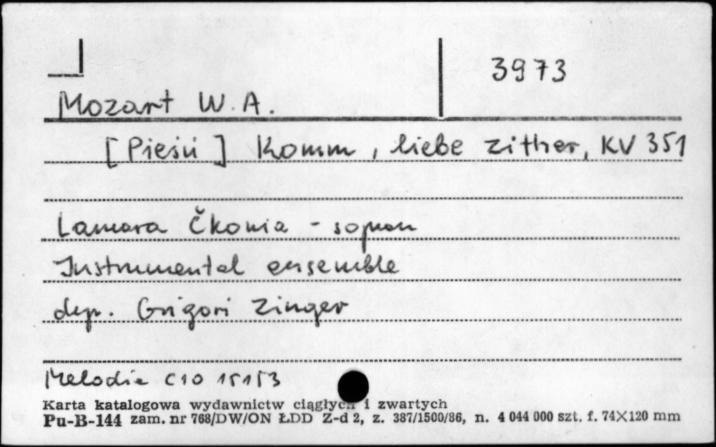 3973
Mozart W. A.
[Pieśń] Komm, liebe zither, KV 351
Lamara Čkonia - sopran
Instrumental ensemble
dyr. Grigori Zinger
Melodia C10 15153
Karta katalogowa wydawnictw ciągłych i zwartych
Pu-B-144 zam. nr 768/DW/ON ŁDD Z-d 2, z. 387/1500/86, n. 4 044 000 szt. f. 74×120 mm